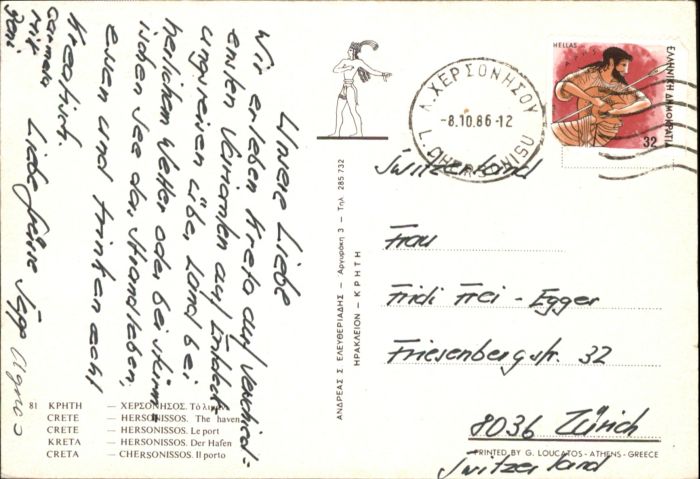 Unsere Liebe
Wir erleben Kreta auf verschied-
ensten Varianten auf Entdeck-
ungsreisen über Land bei
herlichem Wetter oder bei stürm-
ischen See das Strandleben,
essen und trinken echt
Kretisch.
Liebe Grüsse Sepp Agnes
Carmela
Mit
Roni
81 ΚΡΗΤΗ — ΧΕΡΣΟΝΗΣΟΣ. Τὸ λιμάνι
CRETE — HERSONISSOS. The haven
CRETE — HERSONISSOS. Le port
KRETA — HERSONISSOS. Der Hafen
CRETA — CHERSONISSOS. Il porto
ΑΝΔΡΕΑΣ Σ. ΕΛΕΥΘΕΡΙΑΔΗΣ — Αργυράκη 3 — Τηλ. 285 732
ΗΡΑΚΛΕΙΟΝ - ΚΡΗΤΗ
Λ. ΧΕΡΣΟΝΗΣΟΥ
-8.10.86-12
L. CHERSONISU
HELLAS
ΑΡΗΣ
ΕΛΛΗΝΙΚΗ ΔΗΜΟΚΡΑΤΙΑ
32
Switzerland
Frau
Fridi Frei - Egger
Friesenbergstr. 32
8036 Zürich
PRINTED BY G. LOUCATOS - ATHENS - GREECE
Switzerland